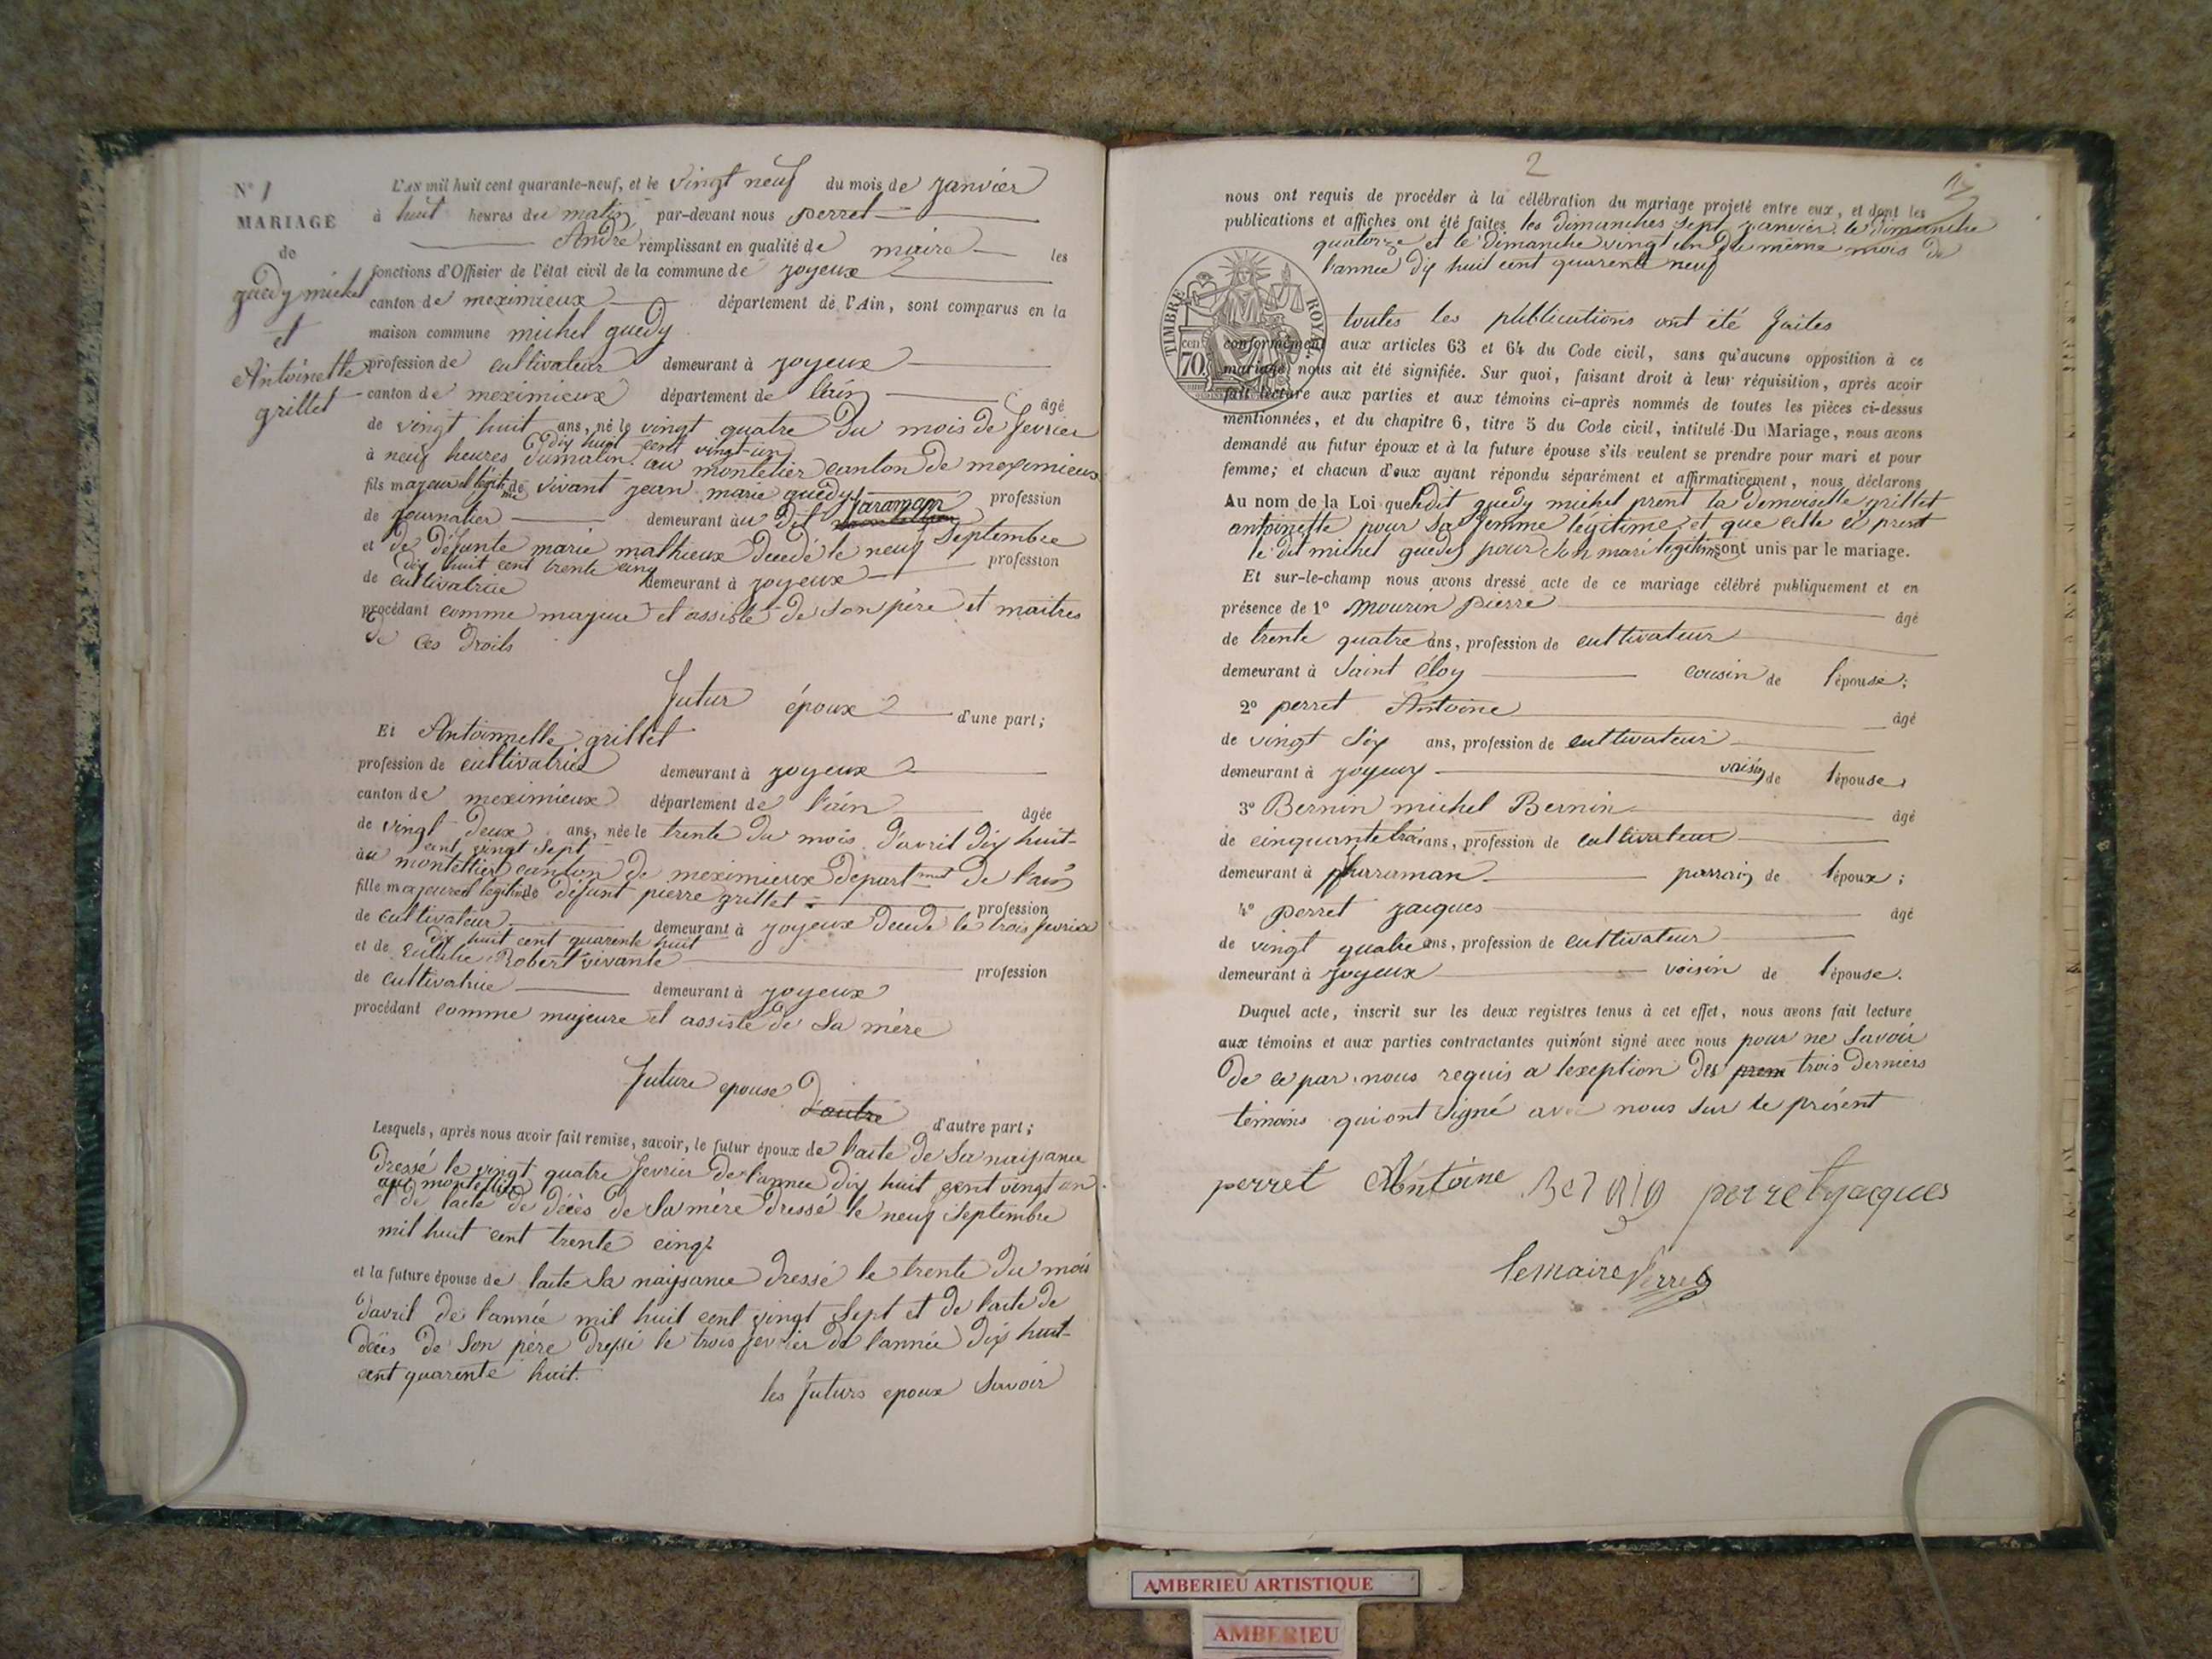 N° 1
MARIAGE
de
guedy michel
et
Antoinette
grillet
L'AN mil huit cent quarante-neuf, et le vingt neuf du mois de janvier
à huit heures du matin par-devant nous perret
André remplissant en qualité de maire les
fonctions d'Officier de l'état civil de la commune de joyeux
canton de meximieux département de l'Ain, sont comparus en la
maison commune michel guedy
profession de cultivateur demeurant à joyeux
canton de meximieux département de l'ain âgé
de vingt huit ans, né le vingt quatre du mois de fevrier
dix huit cent vingt-un
à neuf heures du matin au montelier canton de meximieux
fils majeur et légitime de vivant jean marie guedy profession
de journalier demeurant au dit faramans
et de défunte marie mathieux décedé le neuf Septembre
dix huit cent trente cinq profession
de cultivatrice demeurant à joyeux
procédant comme majeur et assisté de son père et maitres
de ces droits
futur époux d'une part;
Et Antoinnette grillet
profession de cultivatrice demeurant à joyeux
canton de meximieux département de l'ain âgée
de vingt deux ans, née le trente du mois d'avril dix huit
cent vingt sept
au montellier canton de meximieux départment de l'ain
fille majeure et legitime de défunt pierre grillet profession
de cultivateur demeurant à joyeux decedé le trois fevrier
dix huit cent quarente huit
et de Eulalie Robert vivante profession
de cultivatrice demeurant à joyeux
procédant comme majeure et assisté de sa mère
future epouse d'autre d'autre part;
Lesquels, après nous avoir fait remise, savoir, le futur époux de l'acte de sa naissance
dressé le vingt quatre fevrier de l'annee dix huit cent vingt un
au montellier
et de l'acte de décès de sa mère dressé le neuf Septembre
mil huit cent trente cinq
et la future épouse de l'acte sa naissance dressé le trente du mois
davril de l'année mil huit cent vingt sept et de l'acte de
décès de son père dressé le trois fevrier de l'année dix huit
cent quarente huit.
les futurs epoux savoir
2
nous ont requis de procéder à la célébration du mariage projeté entre eux, et dont les
publications et affiches ont été faites les dimanches sept janvier le dimanche
quatorze et le dimanche vingt un du même mois de
l'année dix huit cent quarente neuf
TIMBRE ROYAL
cen
70
toutes les publications ont été faites
conformément aux articles 63 et 64 du Code civil, sans qu'aucune opposition à ce
mariage nous ait été signifiée. Sur quoi, faisant droit à leur réquisition, après avoir
fait lecture aux parties et aux témoins ci-après nommés de toutes les pièces ci-dessus
mentionnées, et du chapitre 6, titre 5 du Code civil, intitulé Du Mariage, nous avons
demandé au futur époux et à la future épouse s'ils veulent se prendre pour mari et pour
femme; et chacun d'eux ayant répondu séparément et affirmativement, nous déclarons
Au nom de la Loi que ledit guedy michel prent la demoiselle grillet
antoinette pour sa femme légitime et que celle ci prent
le dit michel guedy pour son mari legitime sont unis par le mariage.
Et sur-le-champ nous avons dressé acte de ce mariage célébré publiquement et en
présence de 1° mourin pierre âgé
de trente quatre ans, profession de cultivateur
demeurant à Saint éloy cousin de l'épouse;
2° perret Antoine âgé
de vingt six ans, profession de cultivateur
demeurant à joyeux voisin de l'épouse,
3° Bernin michel Bernin âgé
de cinquante trois ans, profession de cultivateur
demeurant à faraman parrain de l'époux;
4° perret jacques âgé
de vingt quatre ans, profession de cultivateur
demeurant à joyeux voisin de l'épouse.
Duquel acte, inscrit sur les deux registres tenus à cet effet, nous avons fait lecture
aux témoins et aux parties contractantes qui n'ont signé avec nous pour ne savoir
de ce par nous requis a lexeption des prem trois derniers
témoins qui ont signé avec nous sur le présent
perret Antoine Bernin perret jacques
lemaire Perret
AMBERIEU ARTISTIQUE
AMBERIEU